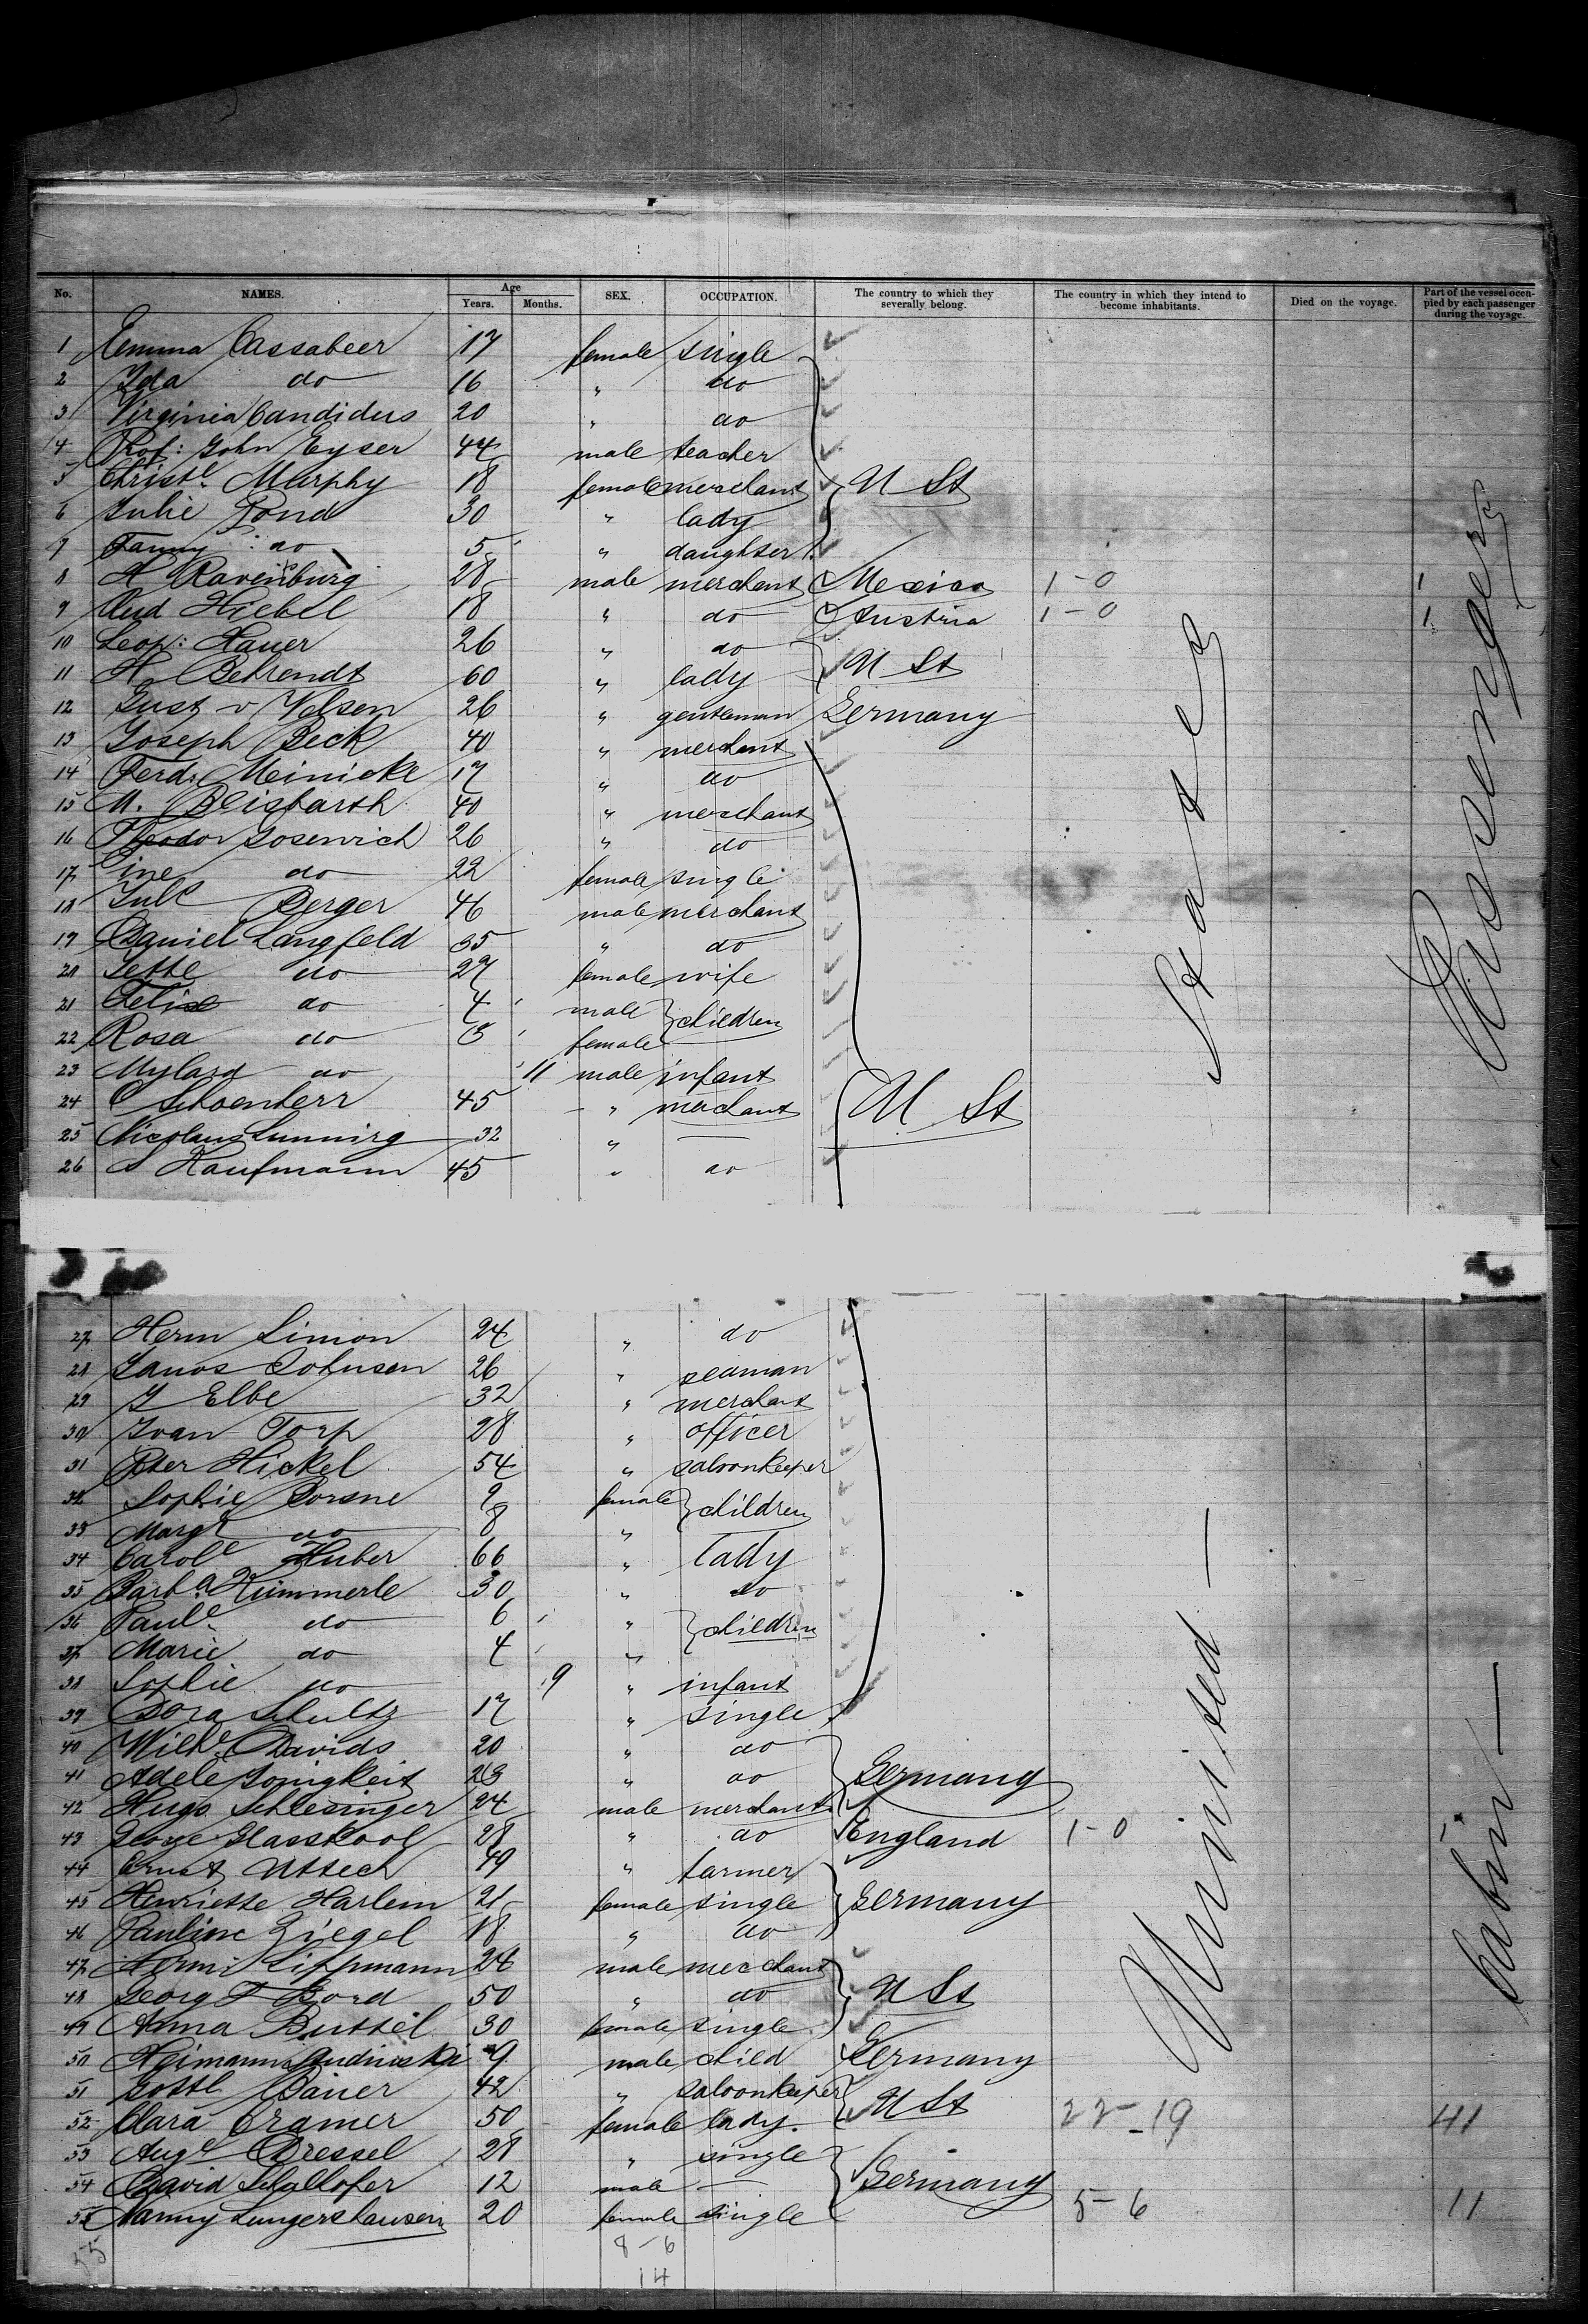 No. NAMES. Age Years. Months. SEX. OCCUPATION. The country to which they severally belong. The country in which they intend to become inhabitants. Died on the voyage. Part of the vessel occupied by each passenger during the voyage.
1 Emma Cassabeer 17 female single
2 Ida do 16 " do
3 Virginia Candidus 20 " do
4 Prof: John Eyser 44 male teacher
5 Christe. Murphy 18 female merchant U St
6 Julie Pond 30 " lady
7 Fanny do 5 " daughter
8 H Ravensburg 28 male merchant Mexico 1-0 1
9 Aud Hiebel 18 " do Austria 1-0 1
10 Leop: Hauer 26 " do
11 H Behrendt 60 " lady U St
12 Gust v Velsen 26 " gentleman Germany
13 Joseph Beck 40 " merchant
14 Ferd. Meinicke 17 " do
15 M. Bleisfarth 40 " merchant
16 Theodor Gosewich 26 " do
17 Tine do 22 female single
18 Jule Berger 46 male merchant
19 Daniel Langfeld 35 " do
20 Jette do 27 female wife
21 Felix do 4 male children
22 Rosa do 5 female
23 Mylard do 11 male infant
24 C Schoenherr 45 " merchant U St
25 Nicolaus Lunnirg 32 " —
26 S Kaufmann 45 " do
27 Herm Simon 24 " do
28 Janos Johnsen 26 " seaman
29 J Elbe 32 " merchant
30 Ivan Torp 28 " officer
31 Peter Hickel 54 " saloonkeeper
32 Sophie Borsne 9 female children
33 Margt do 8 "
34 Carole Huber 66 " lady
35 Barba Kümmerle 30 " do
36 Paule do 6 " children
37 Marie do 4 "
38 Sophie do 9 " infant
39 Dora Schultz 17 " single
40 Wilhe Davids 20 " do
41 Adele Jonigkeit 23 " do Germany
42 Hugo Schlesinger 24 male merchant
43 George Glasskool 28 " do England 1-0 1
44 Ernst Uttech 49 " farmer
45 Henriette Harlem 21 female single Germany
46 Pauline Ziegel 18 " do
47 Herm: Lippmann 24 male merchant
48 Georg F Bord 50 " do U St
49 Anna Bussel 30 female single
50 Heimann 9 male child Germany
51 Gottl Bauer 42 " saloonkeeper U St
52 Clara Cramer 50 female lady 22-19 41
53 Auge Dressel 28 " single
54 David Schulhofer 12 male — Germany
55 Nanny Lungershausen 20 female single 5-6 11
55 8-6
14
United States
Cabin Passengers